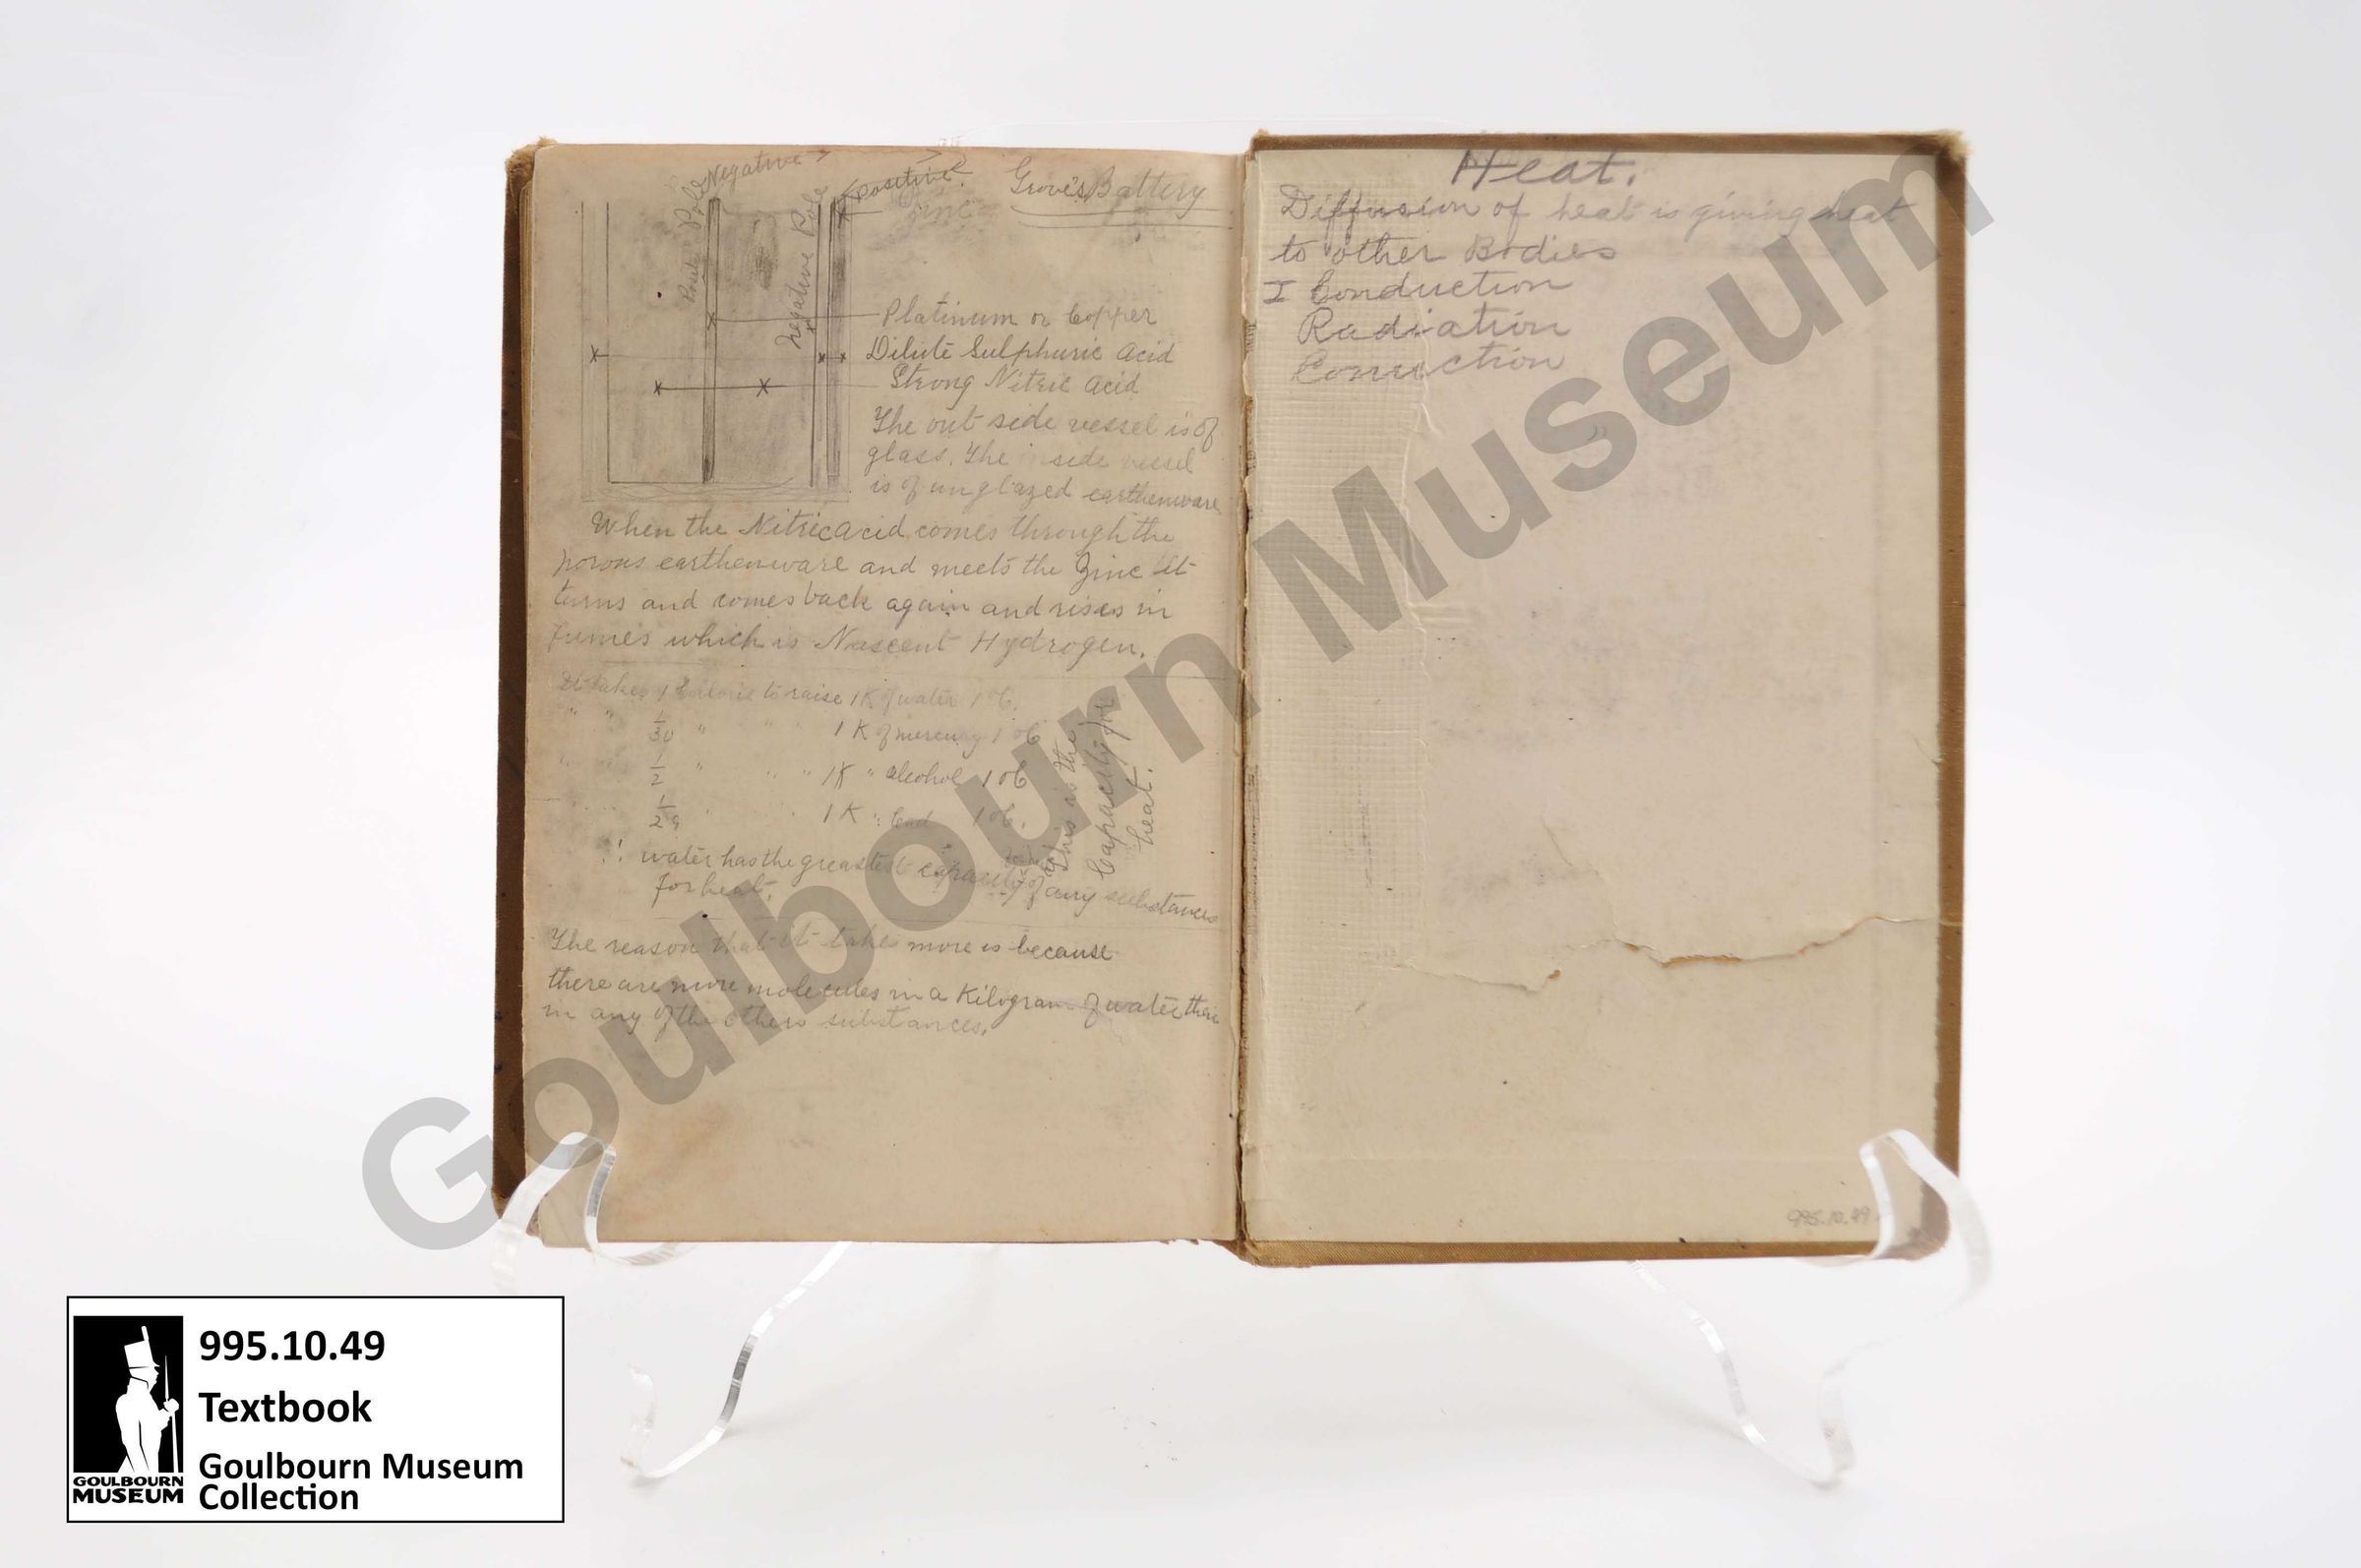 Negative
Positive
Zinc
Grove's Battery
Pole
Negative Pole
Platinum or Copper
Dilute Sulphuric acid
Strong Nitric acid
The out side vessel is of
glass. The inside vessel
is of unglazed earthenware
When the Nitric acid comes through the
porous earthenware and meets the Zinc it
turns and comes back again and rises in
fumes which is Nascent Hydrogen.
It takes 1 Calorie to raise 1 K of water 1°C.
" " 1/30 " " 1 K of mercury 1°C
" " 1/2 " " " 1K " alcohol 1°C
1/29 " " 1 K " Lead 1°C.
This is the
Capacity for
heat.
∴ water has the greatest capacity of any substances
for heat.
The reason that it takes more is because
there are more molecules in a Kilogram of water then
in any of the others substances.
Heat.
Diffusion of heat is giving heat
to other Bodies
I Conduction
Radiation
995.10.49
Goulbourn Museum
995.10.49
Textbook
Goulbourn Museum
Collection
GOULBOURN
MUSEUM